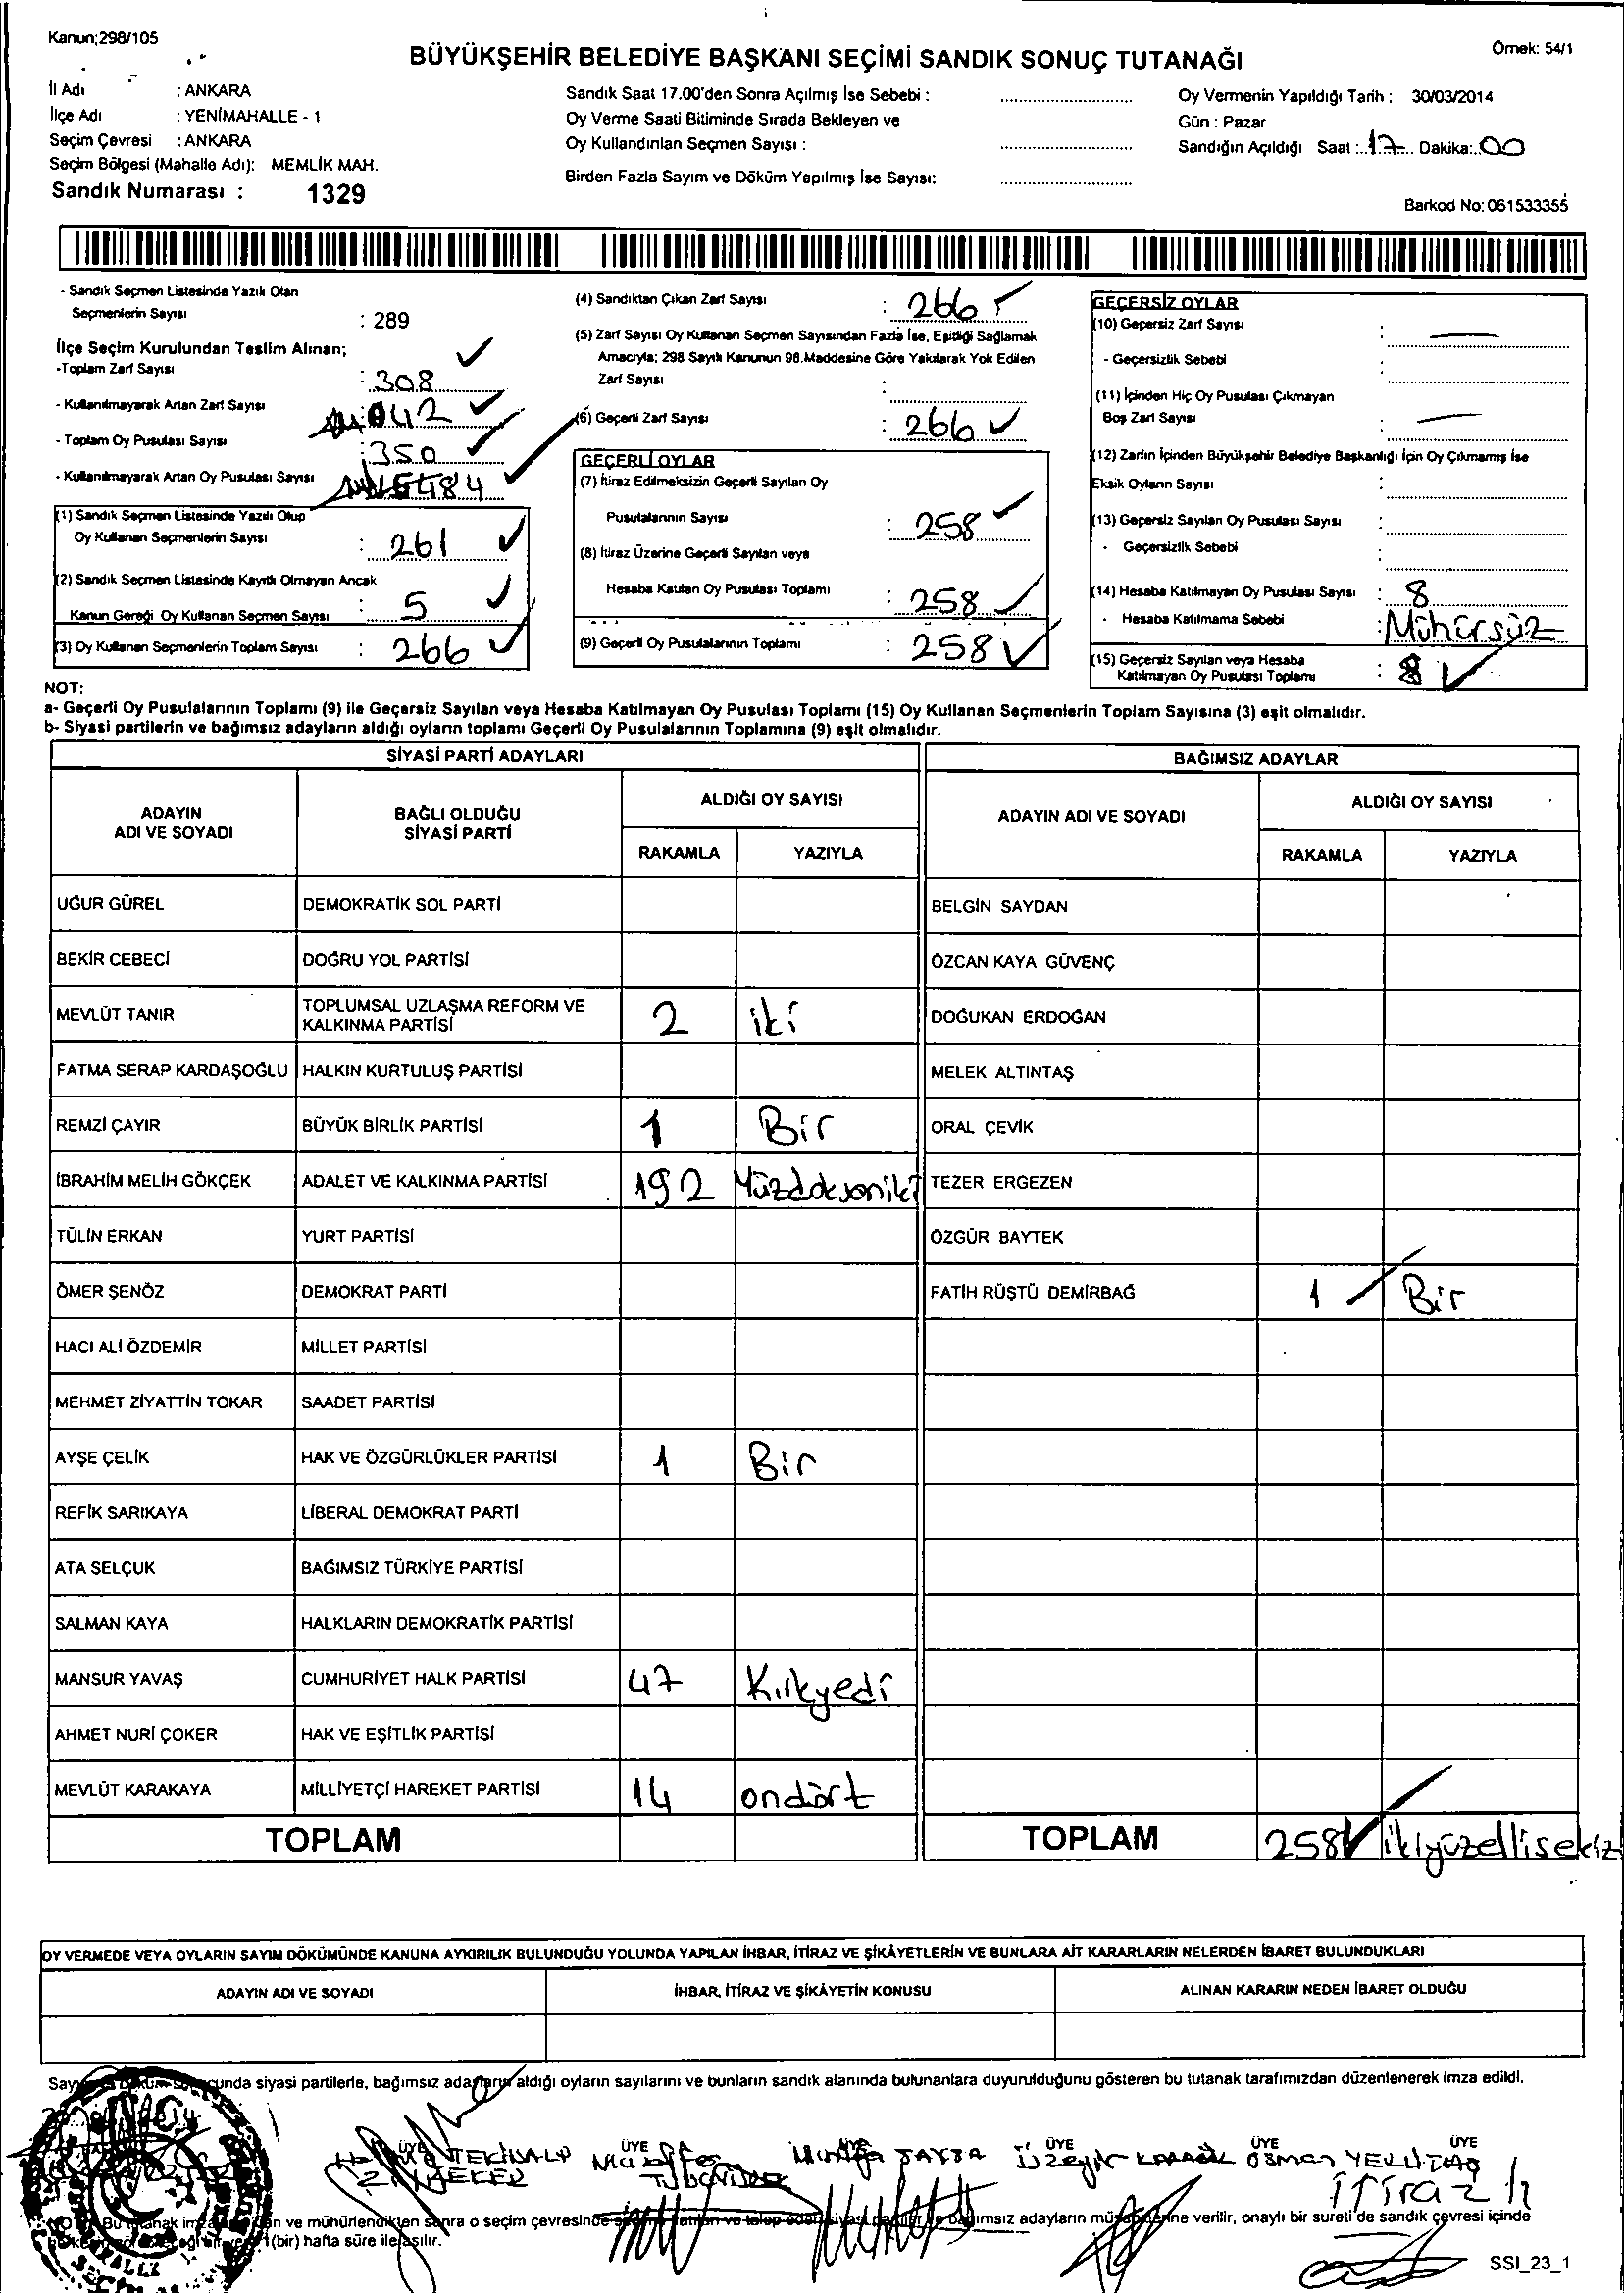 Kanun;298/105
BÜYÜKŞEHİR BELEDİYE BAŞKANI SEÇİMİ SANDIK SONUÇ TUTANAĞI
Örnek: 54/1
İl Adı : ANKARA
İlçe Adı : YENİMAHALLE - 1
Seçim Çevresi : ANKARA
Seçim Bölgesi (Mahalle Adı): MEMLİK MAH.
Sandık Numarası : 1329
Sandık Saat 17.00'den Sonra Açılmış İse Sebebi :
Oy Verme Saati Bitiminde Sırada Bekleyen ve
Oy Kullandırılan Seçmen Sayısı :
Birden Fazla Sayım ve Döküm Yapılmış İse Sayısı:
Oy Vermenin Yapıldığı Tarih : 30/03/2014
Gün : Pazar
Sandığın Açıldığı Saat : 17 Dakika: 00
Barkod No: 061533355
- Sandık Seçmen Listesinde Yazılı Olan
Seçmenlerin Sayısı : 289
İlçe Seçim Kurulundan Teslim Alınan;
-Toplam Zarf Sayısı : 308
- Kullanılmayarak Artan Zarf Sayısı 42
- Toplam Oy Pusulası Sayısı : 350
- Kullanılmayarak Artan Oy Pusulası Sayısı 84
(1) Sandık Seçmen Listesinde Yazılı Olup
Oy Kullanan Seçmenlerin Sayısı : 261
(2) Sandık Seçmen Listesinde Kayıtlı Olmayan Ancak
Kanun Gereği Oy Kullanan Seçmen Sayısı : 5
(3) Oy Kullanan Seçmenlerin Toplam Sayısı : 266
(4) Sandıktan Çıkan Zarf Sayısı : 266
(5) Zarf Sayısı Oy Kullanan Seçmen Sayısından Fazla İse, Eşitliği Sağlamak
Amacıyla; 298 Sayılı Kanunun 98.Maddesine Göre Yakılarak Yok Edilen
Zarf Sayısı :
(6) Geçerli Zarf Sayısı : 266
GEÇERLİ OYLAR
(7) İtiraz Edilmeksizin Geçerli Sayılan Oy
Pusulalarının Sayısı : 258
(8) İtiraz Üzerine Geçerli Sayılan veya
Hesaba Katılan Oy Pusulası Toplamı : 258
(9) Geçerli Oy Pusulalarının Toplamı : 258
GEÇERSİZ OYLAR
(10) Geçersiz Zarf Sayısı : —
- Geçersizlik Sebebi :
(11) İçinden Hiç Oy Pusulası Çıkmayan
Boş Zarf Sayısı : —
(12) Zarfın İçinden Büyükşehir Belediye Başkanlığı İçin Oy Çıkmamış İse
Eksik Oyların Sayısı :
(13) Geçersiz Sayılan Oy Pusulası Sayısı :
- Geçersizlik Sebebi :
(14) Hesaba Katılmayan Oy Pusulası Sayısı : 8
- Hesaba Katılmama Sebebi : Mühürsüz
(15) Geçersiz Sayılan veya Hesaba
Katılmayan Oy Pusulası Toplamı : 8
NOT:
a- Geçerli Oy Pusulalarının Toplamı (9) ile Geçersiz Sayılan veya Hesaba Katılmayan Oy Pusulası Toplamı (15) Oy Kullanan Seçmenlerin Toplam Sayısına (3) eşit olmalıdır.
b- Siyasi partilerin ve bağımsız adayların aldığı oyların toplamı Geçerli Oy Pusulalarının Toplamına (9) eşit olmalıdır.
SİYASİ PARTİ ADAYLARI
ADAYIN ADI VE SOYADI
BAĞLI OLDUĞU SİYASİ PARTİ
ALDIĞI OY SAYISI
RAKAMLA YAZIYLA
UĞUR GÜREL DEMOKRATİK SOL PARTİ
BEKİR CEBECİ DOĞRU YOL PARTİSİ
MEVLÜT TANIR TOPLUMSAL UZLAŞMA REFORM VE KALKINMA PARTİSİ 2 iki
FATMA SERAP KARDAŞOĞLU HALKIN KURTULUŞ PARTİSİ
REMZİ ÇAYIR BÜYÜK BİRLİK PARTİSİ 1 Bir
İBRAHİM MELİH GÖKÇEK ADALET VE KALKINMA PARTİSİ 192 Yüzdoksaniki
TÜLİN ERKAN YURT PARTİSİ
ÖMER ŞENÖZ DEMOKRAT PARTİ
HACI ALİ ÖZDEMİR MİLLET PARTİSİ
MEHMET ZİYATTİN TOKAR SAADET PARTİSİ
AYŞE ÇELİK HAK VE ÖZGÜRLÜKLER PARTİSİ 1 Bir
REFİK SARIKAYA LİBERAL DEMOKRAT PARTİ
ATA SELÇUK BAĞIMSIZ TÜRKİYE PARTİSİ
SALMAN KAYA HALKLARIN DEMOKRATİK PARTİSİ
MANSUR YAVAŞ CUMHURİYET HALK PARTİSİ 47 Kırkyedi
AHMET NURİ ÇOKER HAK VE EŞİTLİK PARTİSİ
MEVLÜT KARAKAYA MİLLİYETÇİ HAREKET PARTİSİ 14 ondört
TOPLAM
BAĞIMSIZ ADAYLAR
ADAYIN ADI VE SOYADI
ALDIĞI OY SAYISI
RAKAMLA YAZIYLA
BELGİN SAYDAN
ÖZCAN KAYA GÜVENÇ
DOĞUKAN ERDOĞAN
MELEK ALTINTAŞ
ORAL ÇEVİK
TEZER ERGEZEN
ÖZGÜR BAYTEK
FATİH RÜŞTÜ DEMİRBAĞ 1 Bir
TOPLAM 258 ikiyüzellisekiz
OY VERMEDE VEYA OYLARIN SAYIM DÖKÜMÜNDE KANUNA AYKIRILIK BULUNDUĞU YOLUNDA YAPILAN İHBAR, İTİRAZ VE ŞİKÂYETLERİN VE BUNLARA AİT KARARLARIN NELERDEN İBARET BULUNDUKLARI
ADAYIN ADI VE SOYADI
İHBAR, İTİRAZ VE ŞİKÂYETİN KONUSU
ALINAN KARARIN NEDEN İBARET OLDUĞU
siyasi partilerle, bağımsız adayların aldığı oyların sayılarını ve bunların sandık alanında bulunanlara duyurulduğunu gösteren bu tutanak tarafımızdan düzenlenerek imza edildi.
ÜYE ÜYE ÜYE ÜYE ÜYE
TEKİNALP Osman
itirazlı
Bu tutanak ve mühürlendikten sonra o seçim çevresinde bağımsız adayların verilir, onaylı bir sureti de sandık çevresi içinde
(bir) hafta süre ile asılır.
SSI_23_1